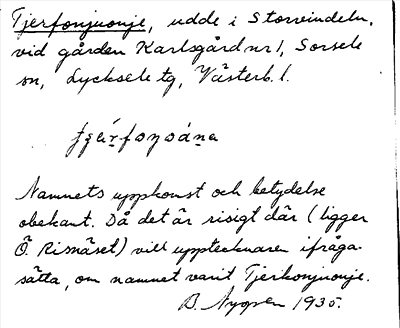 Tjerfonjuonje, udde i Storvindeln,
vid gården Karlsgård nr 1, Sorsele
sn, Lycksele tg, Västerb. l.
Namnets uppkomst och betydelse
obekant. Då det är risigt där (ligger
Ö. Risnäset) vill upptecknaren ifråga-
sätta, om namnet varit Tjerkonjuonje.
B. Nygren 1935.